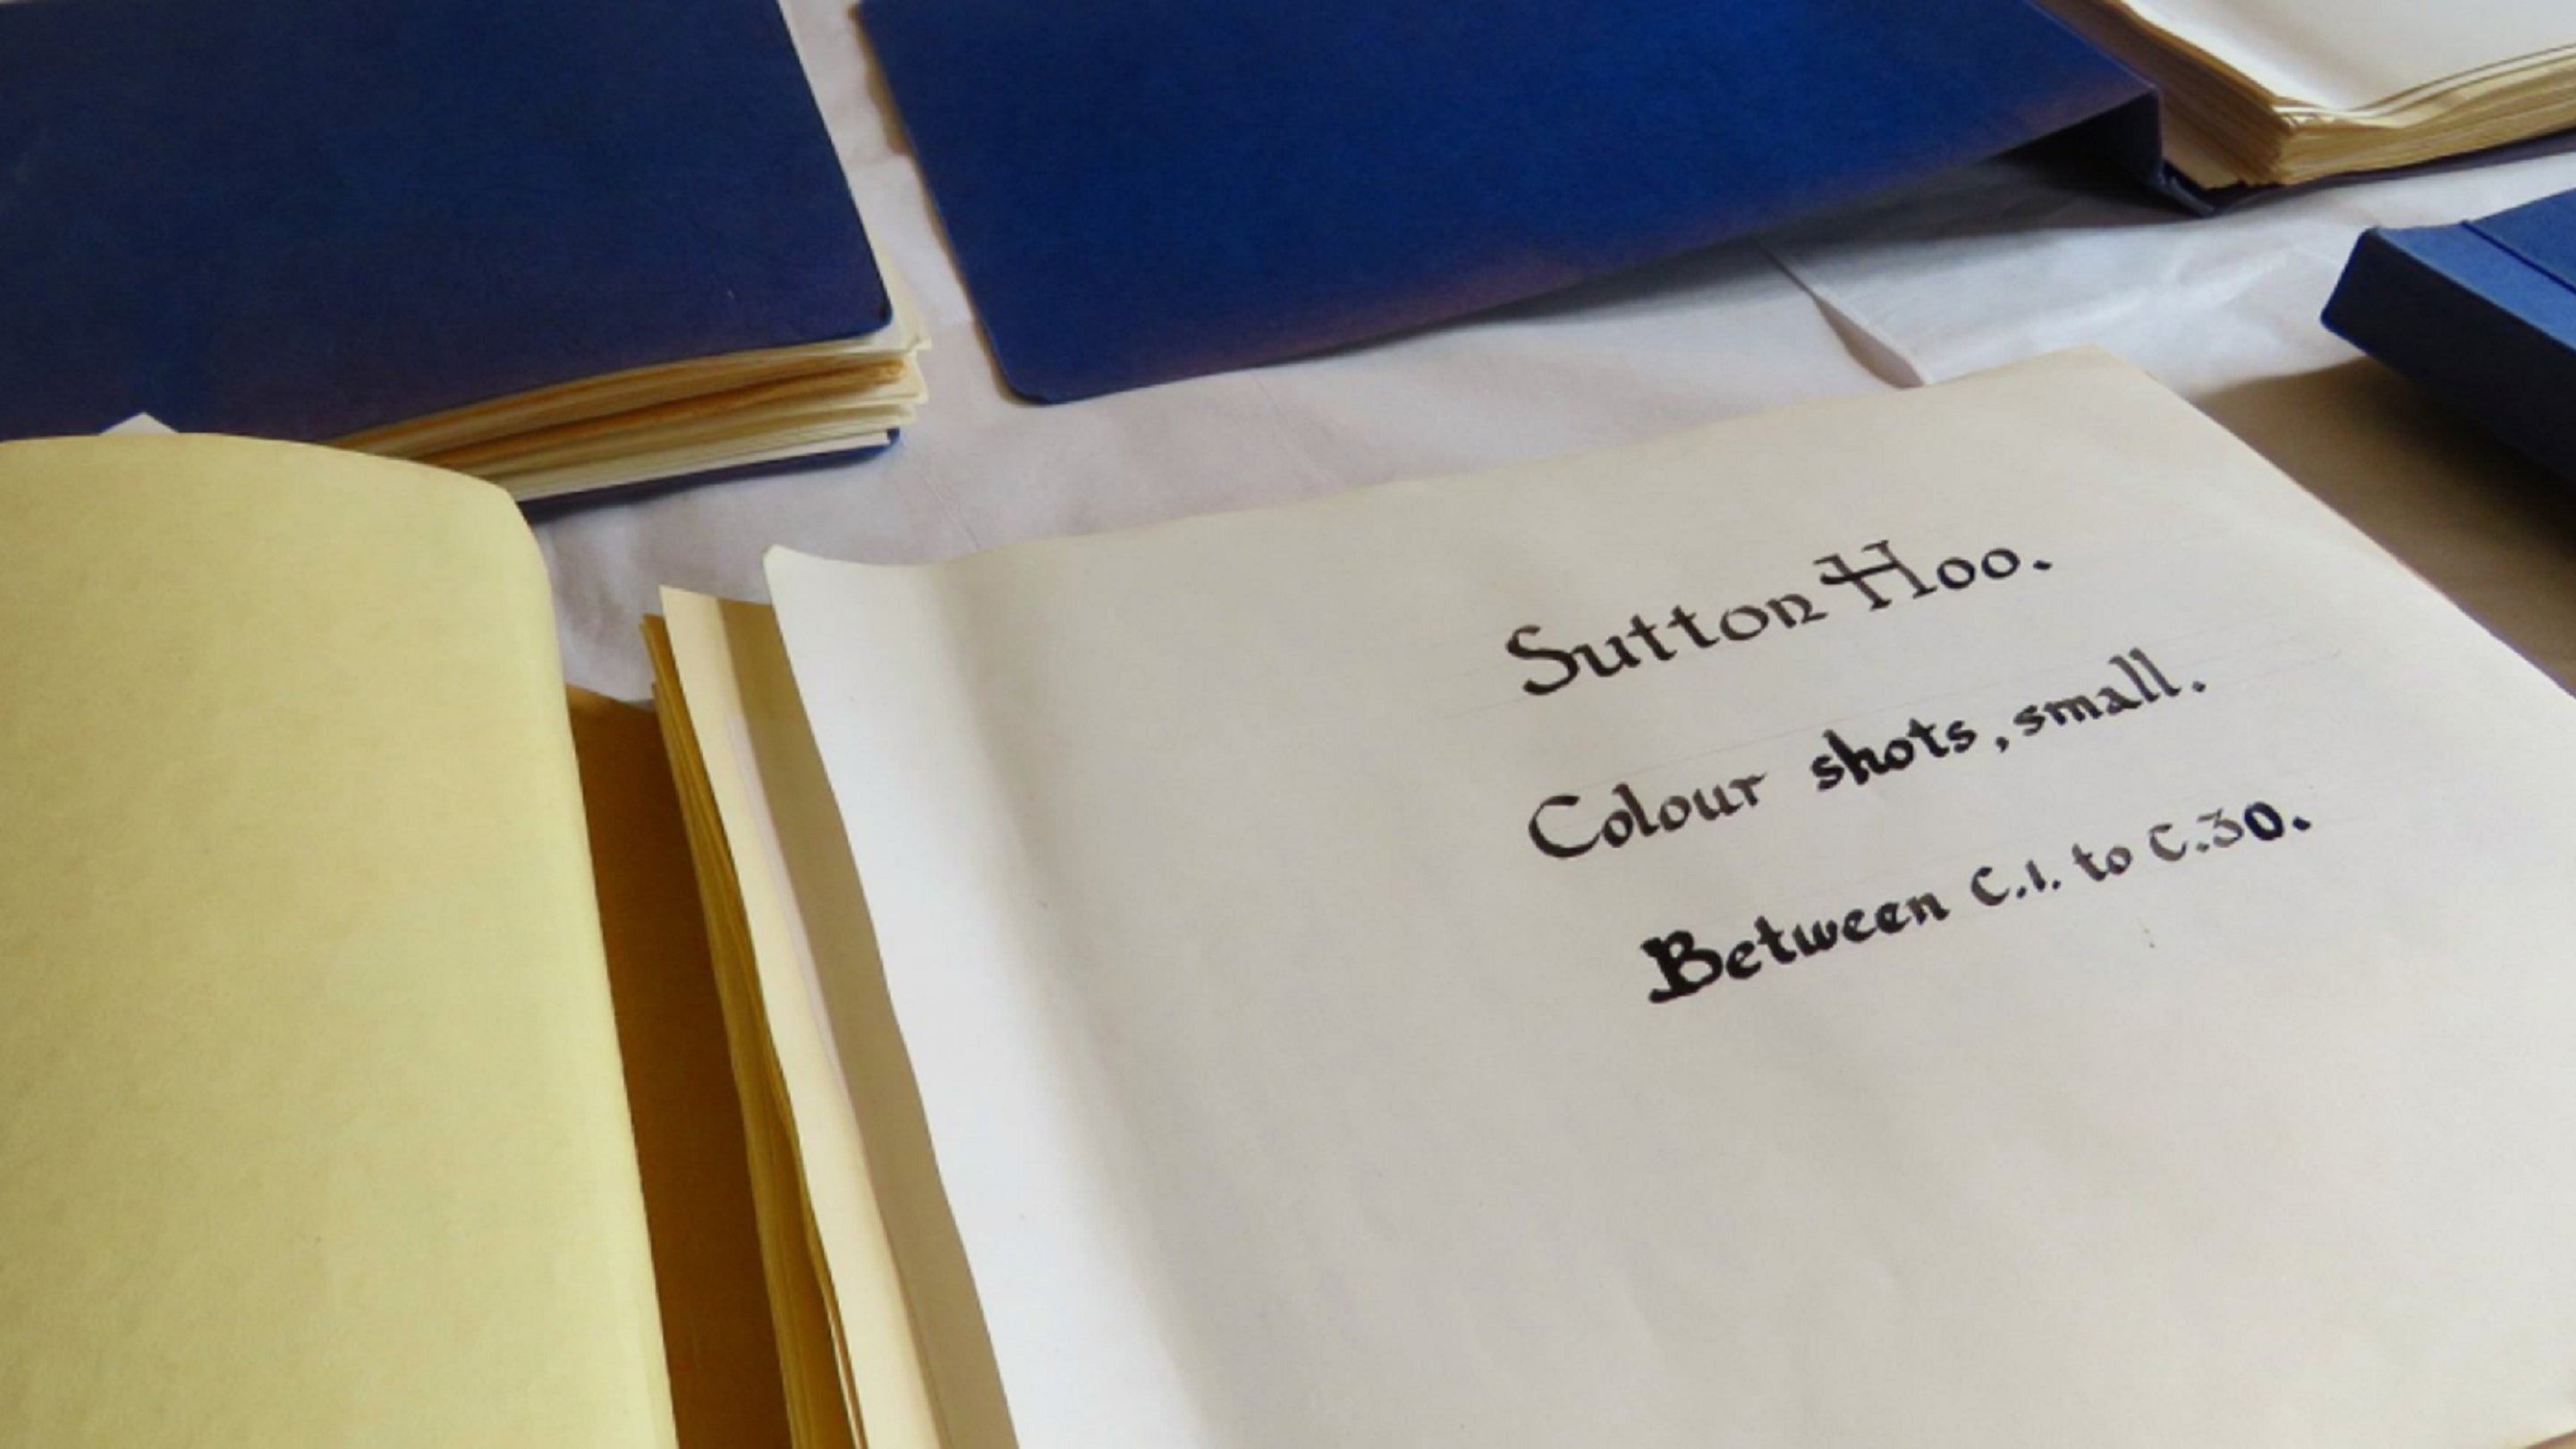 Sutton Hoo.
Colour shots, small.
Between C.1. to C.30.